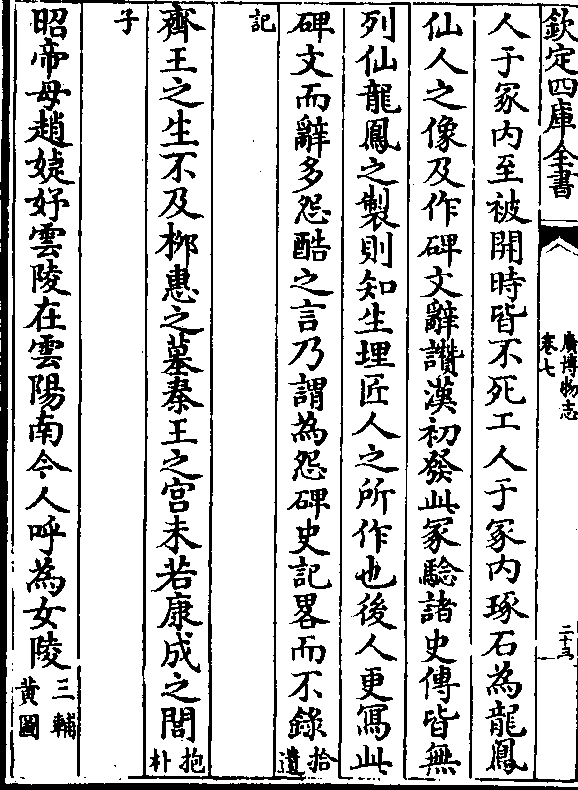 欽定四庫全書
廣博物志
卷七
二十三
人于冢内至被開時皆不死工人于冢内琢石為龍鳳
仙人之像及作碑文辭讚漢初發此冢驗諸史傳皆無
列仙龍鳳之製則知生埋匠人之所作也後人更寫此
碑文而辭多怨酷之言乃謂為怨碑史記畧而不錄拾遺
記
齊王之生不及柳惠之墓秦王之宫未若康成之閭抱朴
子
昭帝母趙婕妤雲陵在雲陽南今人呼為女陵三輔黄圖